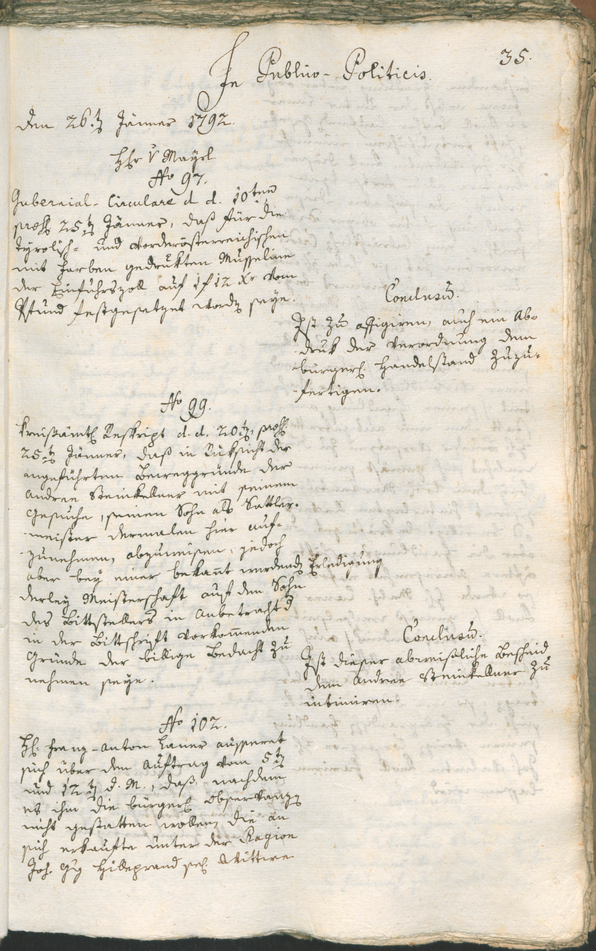 35.
In Publico-Politicis.
Den 26.t Jänner 1792.
Hr v Mayrl
No 97.
Gubernial-Circulare d. d. 10ten
præs 25t Jänner, daß für die
tyrolisch- und vorderösterreichischen
mit Farben gedrukten Musseline
der Einfuhrszoll auf 1 f 12 xr vom
Pfund festgesetzet worden seye.
Conclusum.
Ist zu affigiren, auch ein Ab-
druk der Verordnung dem
bürgerl Handelstand zuzu-
fertigen.
No 99.
Kreisämtl Reskript d. d. 20t præs
25t Jänner, daß in Rüksicht der
angeführten Beweggründe der
Andree Steinkellner mit seinem
Gesuche, seinen Sohn als Sattler-
meister dermalen hier auf-
zunehmen, abzuweisen, jedoch
aber bey einer bekant werdends Erledigung
derley Meisterschaft auf den Sohn
des Bittstellers in Anbetracht d
in der Bittschrift vorkommenden
Gründe der billige Bedacht zu
nehmen seye.
Conclusum.
Ist dieser abweisliche Bescheid
dem Andree Steinkellner zu
intimiren.
No 102.
H. Franz-Anton aussert
sich über den Auftrag vom 5t
und 12t d. M., daß, nachdem
es ihm die bürgerl Observanz
nicht gestatten wollen, die an
sich erkaufte unter der Ragion
Joh. Gg Hilleprand sel Wittwe